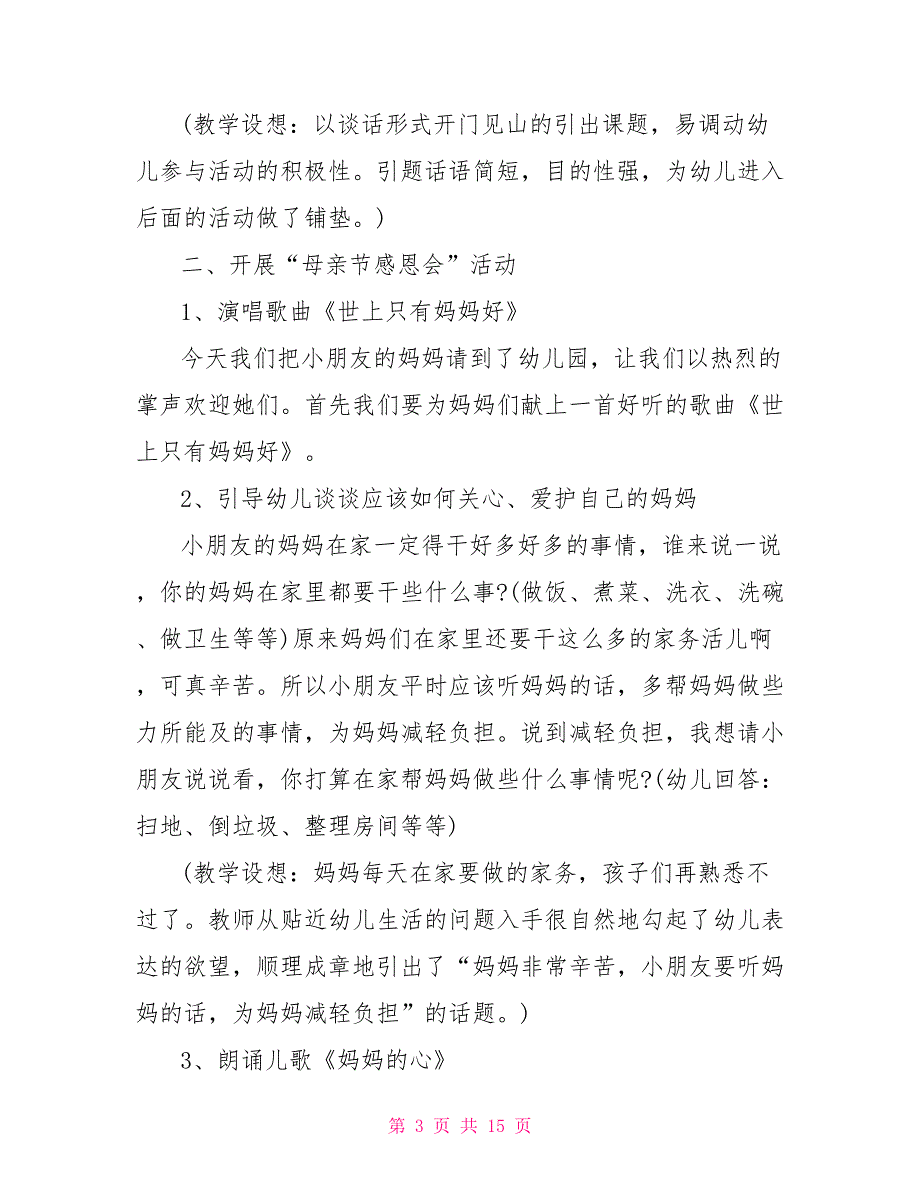 (教学设想：以谈话形式开门见山的引出课题，易调动幼
儿参与活动的积极性。引题话语简短，目的性强，为幼儿进入
后面的活动做了铺垫。)
二、开展“母亲节感恩会”活动
1、演唱歌曲《世上只有妈妈好》
今天我们把小朋友的妈妈请到了幼儿园，让我们以热烈的
掌声欢迎她们。首先我们要为妈妈们献上一首好听的歌曲《世
上只有妈妈好》。
2、引导幼儿谈谈应该如何关心、爱护自己的妈妈
小朋友的妈妈在家一定得干好多好多的事情，谁来说一说
，你的妈妈在家里都要干些什么事?(做饭、煮菜、洗衣、洗碗
、做卫生等等)原来妈妈们在家里还要干这么多的家务活儿啊
，可真辛苦。所以小朋友平时应该听妈妈的话，多帮妈妈做些
力所能及的事情，为妈妈减轻负担。说到减轻负担，我想请小
朋友说说看，你打算在家帮妈妈做些什么事情呢?(幼儿回答：
扫地、倒垃圾、整理房间等等)
(教学设想：妈妈每天在家要做的家务，孩子们再熟悉不
过了。教师从贴近幼儿生活的问题入手很自然地勾起了幼儿表
达的欲望，顺理成章地引出了“妈妈非常辛苦，小朋友要听妈
妈的话，为妈妈减轻负担”的话题。)
3、朗诵儿歌《妈妈的心》
第 3 页 共 15 页